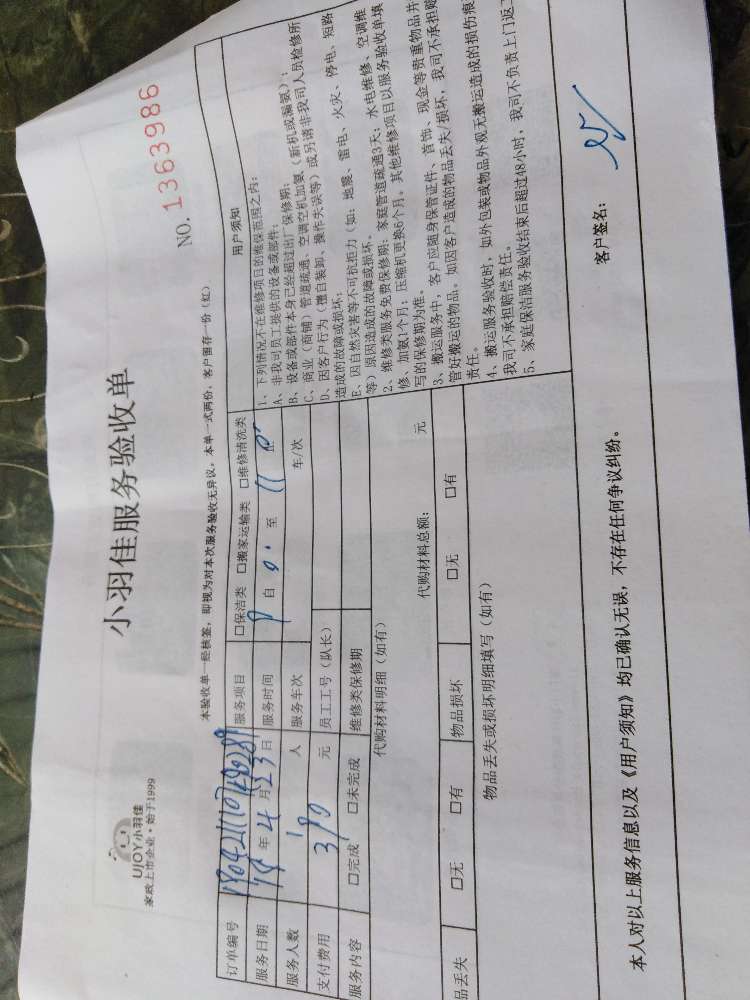 UJOY小羽佳
家政上市企业·始于1999
小羽佳服务验收单
NO. 1363986
本验收单一经核签，即视为对本次服务验收无异议。本单一式两份，客户留存一份（红）
订单编号
服务项目 □保洁类 □搬家运输类 □维修清洗类
服务日期 18年4月23日 服务时间 自 9 至 11
服务人数 人 服务车次 车/次
支付费用 元 员工工号（队长）
服务内容 □完成 □未完成 维修类保修期
代购材料明细（如有）
代购材料总额： 元
品丢失 □无 □有 物品损坏 □无 □有
物品丢失或损坏明细填写（如有）
用户须知
1、下列情况不在维修项目的维保范围之内：
A、非我司员工提供的设备或部件；
B、设备或部件本身已经超过出厂保修期；
C、商业（商铺）管道疏通、空调空机加氨（新机或漏氨）；
D、因客户行为（擅自装卸、操作失误等）或另请非我司人员检修所
造成的故障或损坏；
E、因自然灾害等不可抗拒力（如：地震、雷电、火灾、停电、短路
等）原因造成的故障或损坏。
2、维修类服务免费保修期：家庭管道疏通3天；水电维修、空调维
修、加氨1个月；压缩机更换6个月。其他维修项目以服务验收单填
写的保修期为准。
3、搬运服务中，客户应随身保管证件、首饰、现金等贵重物品并
管好搬运的物品。如因客户造成的物品丢失/损坏，我司不承担赔
责任。
4、搬运服务验收时，如外包装或物品外观无搬运造成的损伤痕
我司不承担赔偿责任。
5、家庭保洁服务验收结束后超过48小时，我司不负责上门返工
本人对以上服务信息以及《用户须知》均已确认无误，不存在任何争议纠纷。
客户签名：